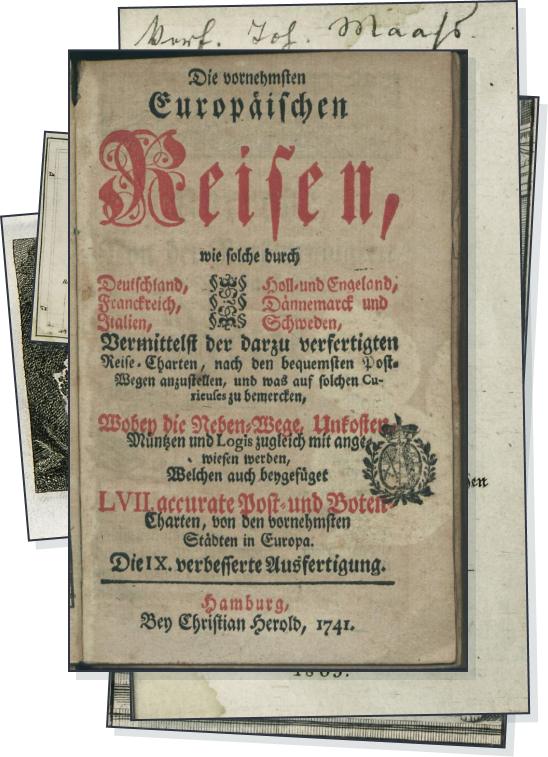 Verf. Joh. Maaß.
Die vornehmsten
Europäischen
Reisen,
wie solche durch
Deutschland, Holl- und Engeland,
Franckreich, Dännemarck und
Italien, Schweden,
Vermittelst der darzu verfertigten
Reise-Charten, nach den bequemsten Post-
Wegen anzustellen, und was auf solchen Cu-
rieuses zu bemercken,
Wobey die Neben-Wege, Unkosten,
Müntzen und Logis zugleich mit ange-
wiesen werden,
Welchen auch beygefüget
LVII. accurate Post- und Boten-
Charten, von den vornehmsten
Städten in Europa.
Die IX. verbesserte Ausfertigung.
Hamburg,
Bey Christian Herold, 1741.